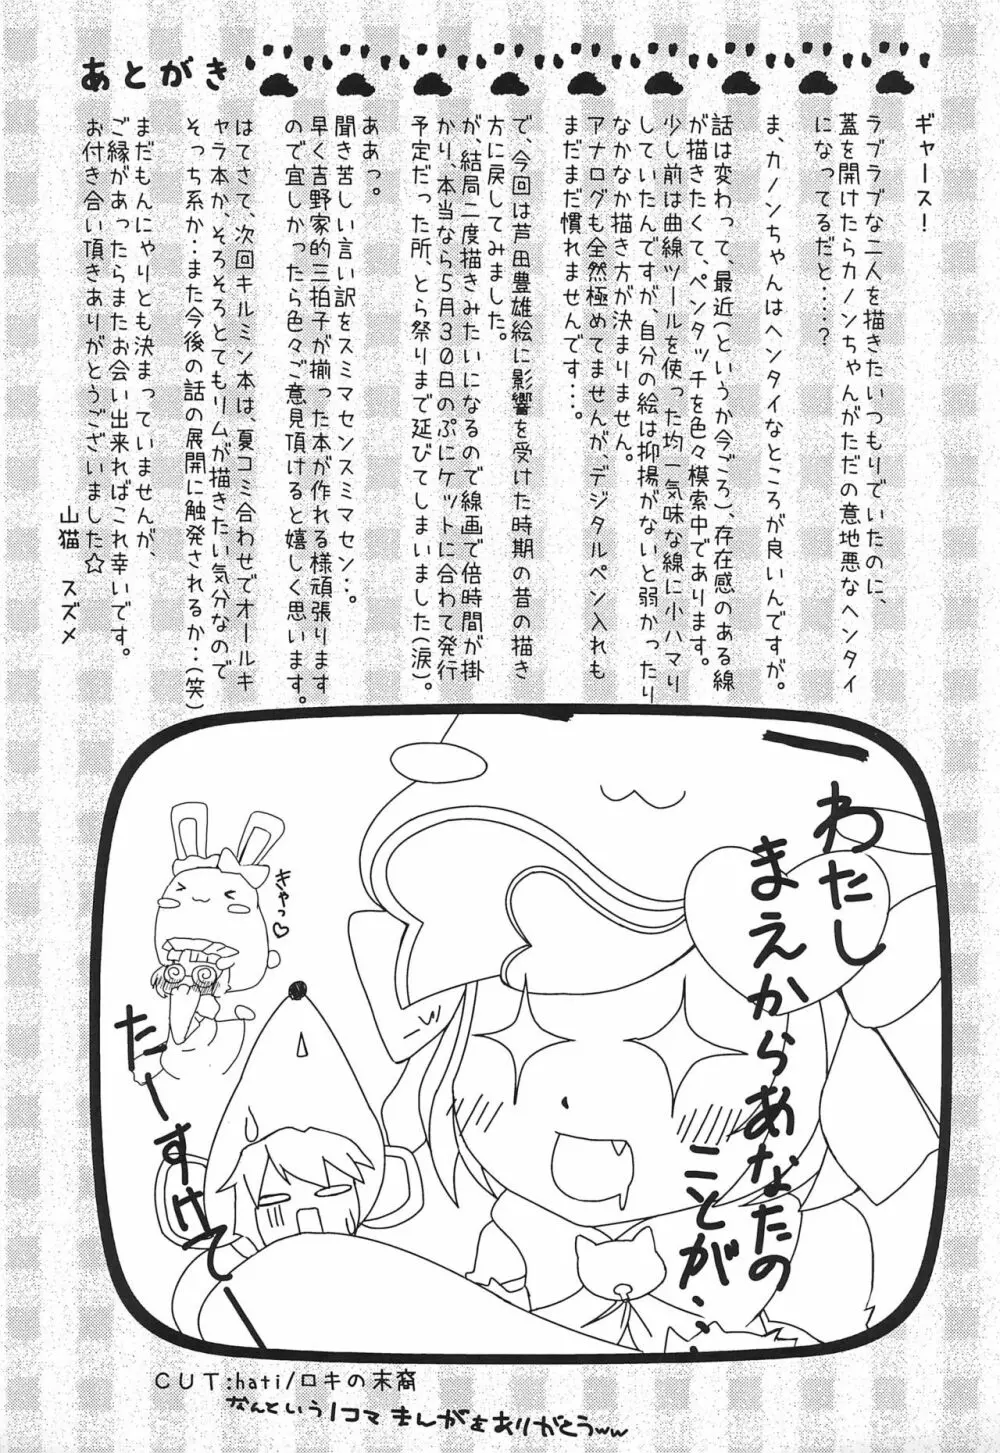 あとがき
ギャース！
ラブラブな二人を描きたいつもりでいたのに、
蓋を開けたらカノンちゃんがただの意地悪なヘンタイ
になってるだと‥‥？
ま、カノンちゃんはヘンタイなところが良いんですが。
話は変わって、最近（というか今ごろ）、存在感のある線
が描きたくて、ペンタッチを色々模索中であります。
少し前は曲線ツールを使った均一気味な線に小ハマり
していたんですが、自分の絵は抑揚がないと弱かったり
なかなか描き方が決まりません。
アナログも全然極めてませんが、デジタルペン入れも
まだまだ慣れませんです‥‥。
で、今回は芦田豊雄絵に影響を受けた時期の昔の描き
方に戻してみました。
が、結局二度描きみたいになるので線画で倍時間が掛
かり、本当なら５月３０日のぷにケットに合わせて発行
予定だった所、とら祭りまで延びてしまいました（涙）。
ああっ。
聞き苦しい言い訳をスミマセンスミマセン‥。
早く吉野家的三拍子が揃った本が作れる様頑張ります
ので宜しかったら色々ご意見頂けると嬉しく思います。
はてさて、次回キルミン本は、夏コミ合わせでオールキ
ャラ本か、そろそろとてもリムが描きたい気分なので
そっち系か‥また今後の話の展開に触発されるか‥（笑）
まだもんにゃりとも決まっていませんが、
ご縁があったらまたお会い出来ればこれ幸いです。
お付き合い頂きありがとうございました☆
山猫　スズメ
わたし
まえからあなたの
ことが‥‥
きゃっ♡
たーすけてー
CUT:hati/ロキの末裔
なんという1コマまんがをありがとうww